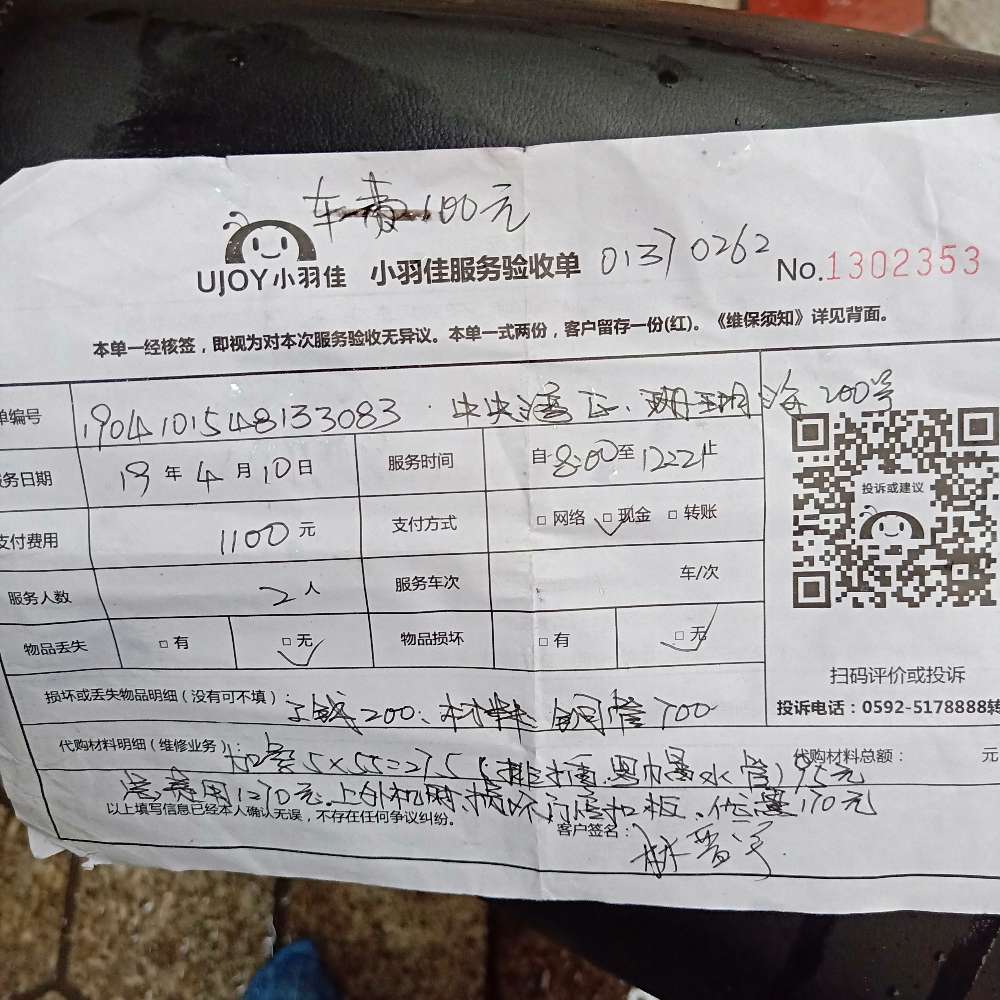 车费100元
UJOY小羽佳 小羽佳服务验收单 01370262 No.1302353
本单一经核签，即视为对本次服务验收无异议。本单一式两份，客户留存一份(红)。《维保须知》详见背面。
单编号 1904101548133083 央央湾 珊瑚 200号
务日期 19年4月10日 服务时间 自8:00至1222止
投诉或建议
支付费用 1100元 支付方式 □网络 □现金 □转账
服务人数 2人 服务车次 车/次
物品丢失 □有 □无 物品损坏 □有 □无
扫码评价或投诉
损坏或丢失物品明细（没有可不填）： 200、材料 铜管700
投诉电话：0592-5178888转
代购材料明细（维修业务）： 5×55=275 水管）95元 代购材料总额： 元
费用1270元 上外机时 170元
以上填写信息已经本人确认无误，不存在任何争议纠纷。 客户签名：